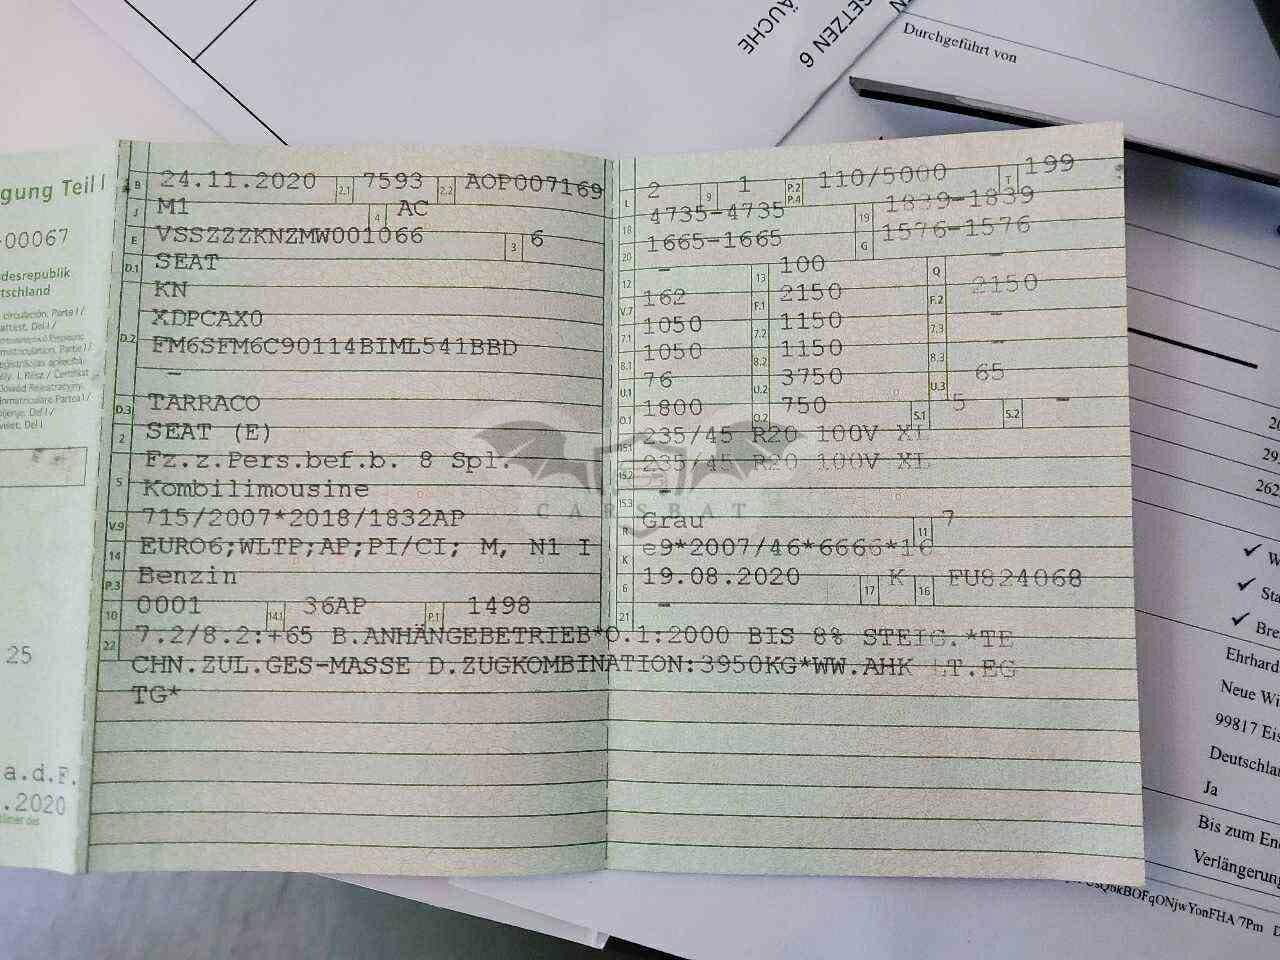 GSETZEN 6
ÄUCHE
Durchgeführt von
gung Teil I
-00067
desrepublik
tschland
B 24.11.2020 2.1 7593 2.2 AOP007169
J M1 4 AC
E VSSZZZKNZMW001066 3 6
D.1 SEAT
KN
D.2 XDPCAX0
FM6SFM6C90114BIML541BBD
—
D.3 TARRACO
2 SEAT (E)
Fz.z.Pers.bef.b. 8 Spl.
5 Kombilimousine
V.9 715/2007*2018/1832AP
14 EURO6;WLTP;AP;PI/CI; M, N1 I
P.3 Benzin
10 0001 14.1 36AP P.1 1498
22 7.2/8.2:+65 B.ANHÄNGEBETRIEB*O.1:2000 BIS 8% STEIG.*TE
CHN.ZUL.GES-MASSE D.ZUGKOMBINATION:3950KG*WW.AHK LT.EG
TG*
L 2 9 1 P.2 P.4 110/5000 T 199
18 4735-4735 19 1839-1839
20 1665-1665 G 1576-1576
12 — 13 100 Q —
V.7 162 F.1 2150 F.2 2150
7.1 1050 7.2 1150 7.3 —
8.1 1050 8.2 1150 8.3 —
U.1 76 U.2 3750 U.3 65
O.1 1800 O.2 750 S.1 5 S.2 —
15.1 235/45 R20 100V XL
15.2 235/45 R20 100V XL
15.3 —
R Grau 11 7
K e9*2007/46*6666*16
6 19.08.2020 17 K 16 FU824068
21 —
CARSBAT
25
a.d.F.
.2020
29
262
Ehrhard
Neue Wi
99817 Eis
Deutschla
Ja
Bis zum En
Verlängerung